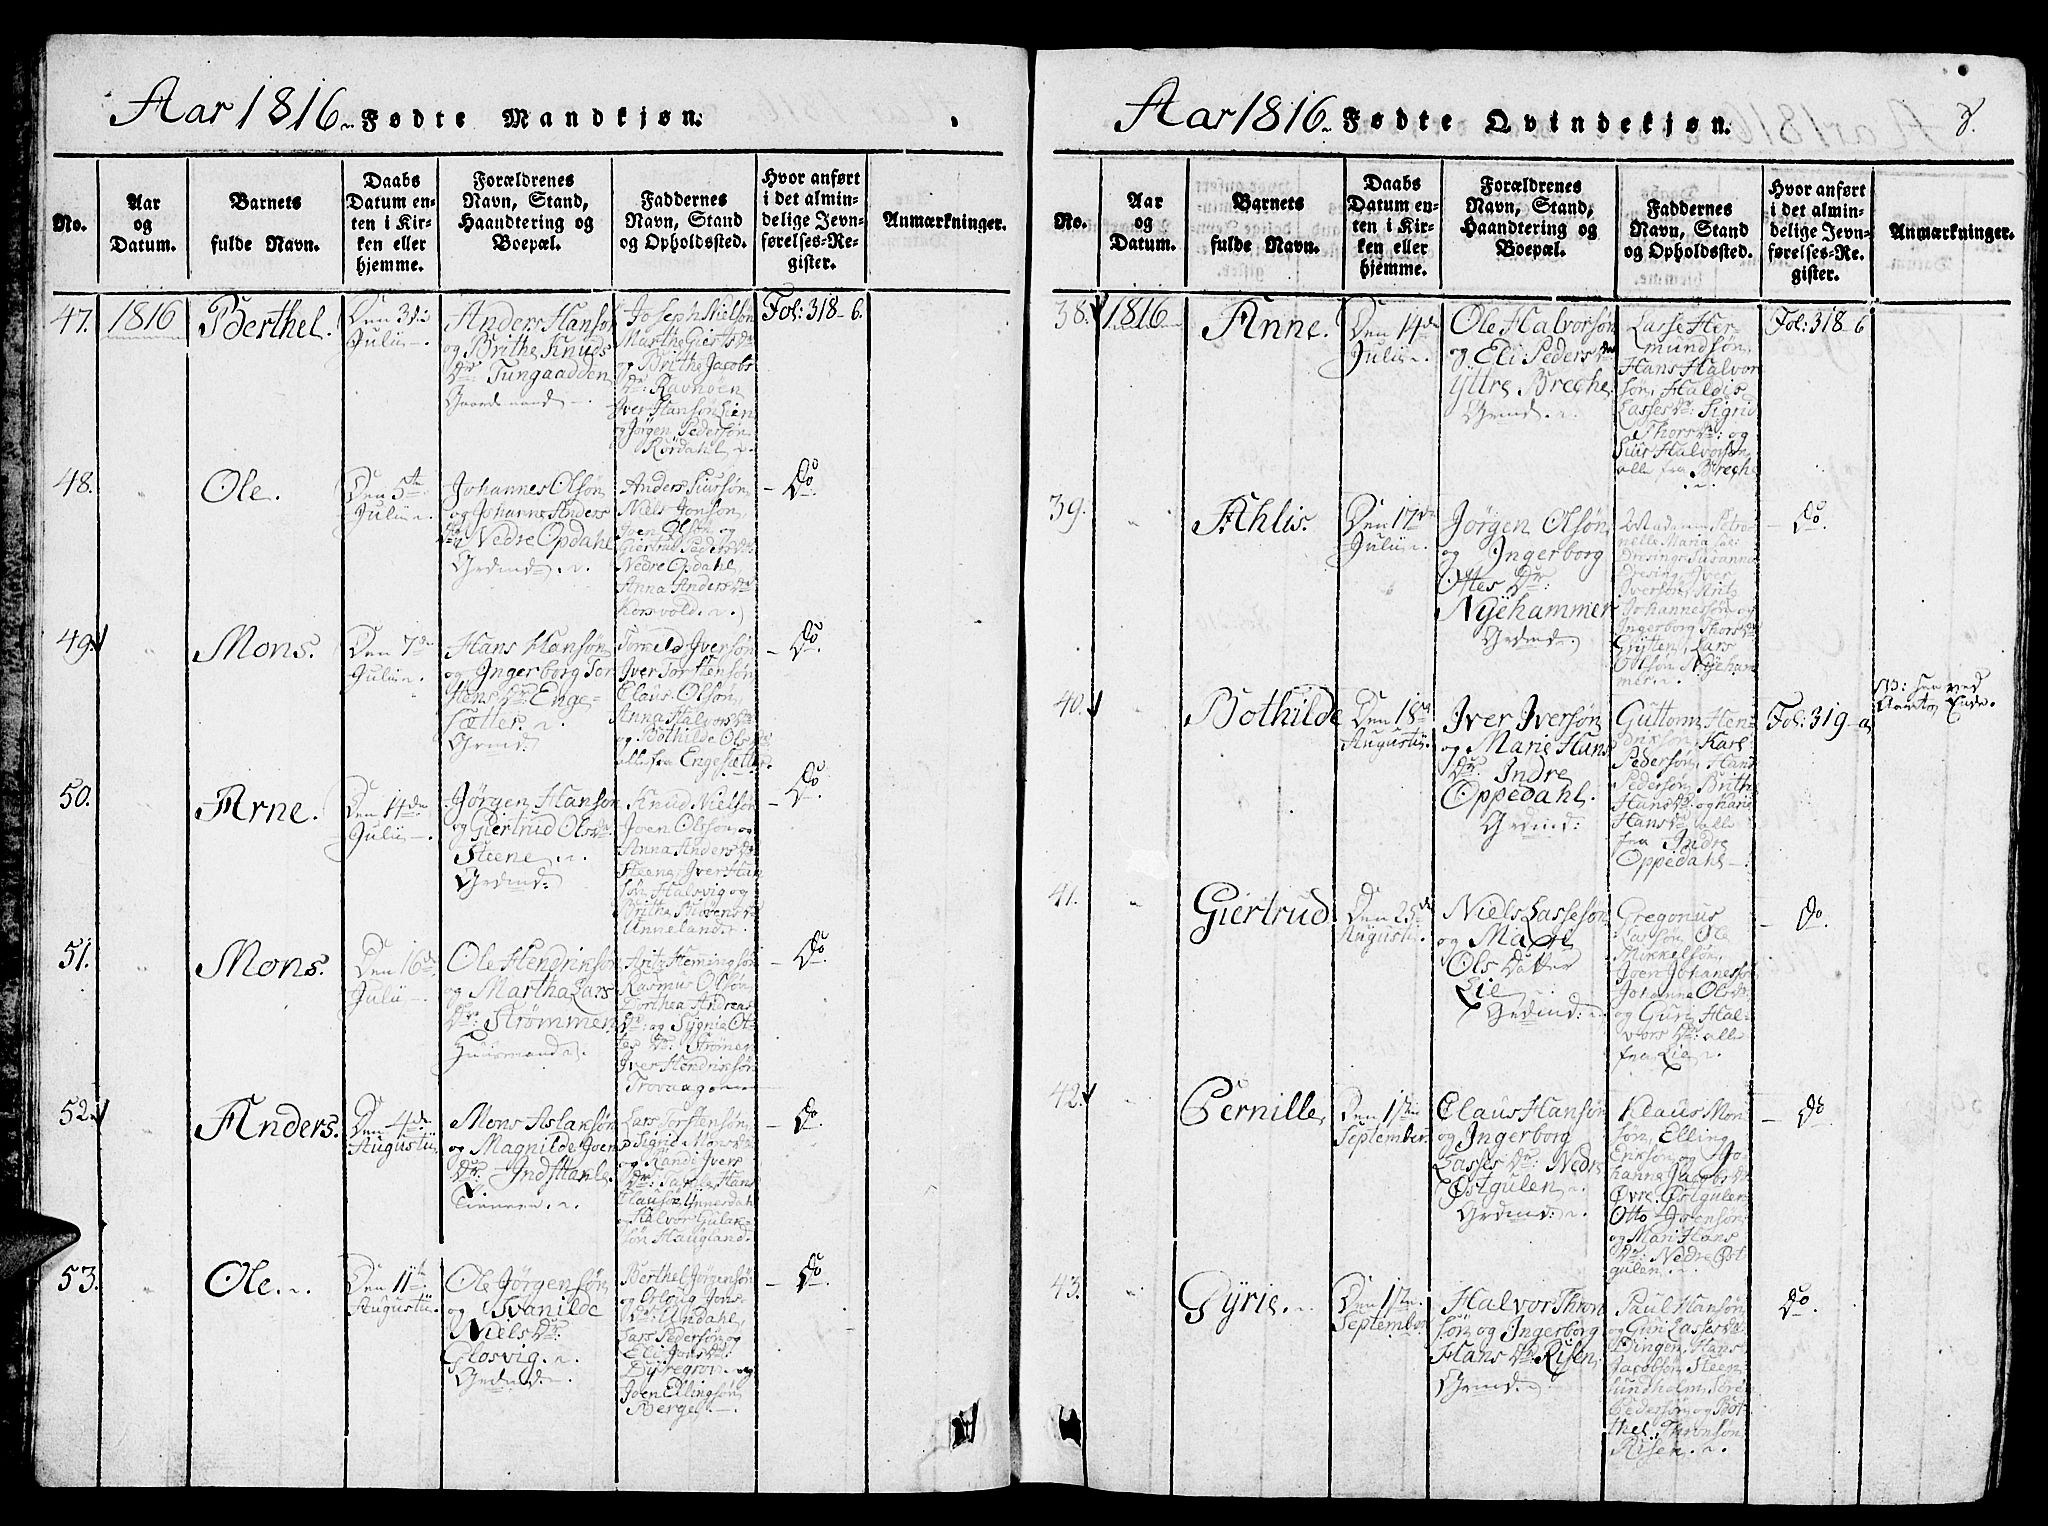 Aar 1816 Fødte Mandkjøn.
No.
Aar
og
Datum.
Barnets
fulde Navn.
Daabs
Datum en-
ten i Kir-
ken eller
hjemme.
Forældrenes
Navn, Stand,
Haandtering og
Boepæl.
Faddernes
Navn, Stand
og Opholdssted.
Hvor anført
i det almin-
delige Jevn-
førelses-Re-
gister.
Anmærkninger.
47.
1816
Berthel.
Den 3die
Julii
Anders Hansøn
og Brithe Knuds
Dr. Tungaadden
Gaardmand
Joseph Nielsøn
Marthe Gierts Dr
og Brithe Jacobs
Dr: Ravnøen
Iver Hansøn Lien
og Jørgen Pedersøn
Rørdahl
Fol: 318-6.
48.
Ole.
Den 5te
Julii
Johannes Olsøn
og Johanne Anders
Dr Nedre Opdahl
Grdmd
Anders Siursøn
Niels Jonsøn,
Joen Olsøn og
Giertrud Peders Dr
Nedre Opdahl,
Anna Anders Dr
Do
49.
Mons.
Den 7de
Julii
Hans Hansøn
og Ingerborg Tor
stens Dr Enge-
sætter
Grmd:
Iversøn
Iver Torstensøn
Claus Olsøn,
Anna Halvors Dr
og Bothilde Ols Dr
alle fra Engesætter.
Do
50.
Arne.
Den 14de
Julii
Jørgen Hansøn
og Giertrud Ols Dr
Steene
Grdmd:
Knud Nielsøn
Joen Olsøn, og
Anna Anders Dr
Steene, Iver Han
søn Halsvig og
Anneland
Do
51.
Mons.
Den 16de
Julii
Ole Hendriksøn
og Martha Lars
Dr: Strømmen
Huusmand
Hemingsøn
Rasmus Olsøn
Dorthea Andreas
Dr: og Sygnia Ot-
tes Dr: Strømen
Iver Hendriksøn
Trovaag
Do
52.
Anders.
Den 4de
Augustii
Mons Aslaksøn
og Magnilde Joens
Dr: Indstahle.
Lars Torstensøn,
Sigrid Mons Dr
og Randi Ivers
Dr: Hans
Claussøn
og Halvor Gulak-
søn Haugland.
Do
53.
Ole.
Den 11te
Augustii
Ole Jørgensøn
og Svanilde
Niels Dr:
Glosvig.
Grdmd
Berthel Jørgensøn
og Jons
Dr: Undahl,
Lars Pedersøn og
Eli Jons Dr:
Dyregrov og
Joen Ellingsøn
Berge.
Do
Aar 1816 Fødte Qvindekjøn.
8.
No.
Aar
og
Datum.
Barnets
fulde Navn.
Daabs
Datum en-
ten i Kir-
ken eller
hjemme.
Forældrenes
Navn, Stand,
Haandtering og
Boepæl.
Faddernes
Navn, Stand
og Opholdssted.
Hvor anført
i det almin-
delige Jevn-
førelses-Re-
gister.
Anmærkninger.
38.
1816
Anne.
Den 14de
Julii
Ole Halvorsøn
og Eli Peders Dr
Yttre Brecke
Grmd
Lasse Her-
mundsøn,
Hans Halvor
søn, Haldis
Lasses Dr: Sigrid
Thors Dr: og
Siur Halvorsøn,
alle fra Breche
Fol: 318-6
39.
Ahlis.
Den 17de
Julii
Jørgen Olsøn
og Ingerborg
Ottes Dr
Nyehammer
Grdmd
Madame Petro-
nelle Maria
Dresing, Susanne
Dresing, Iver
Iversøn,
Johannesøn og
Ingerborg Thors Dr
Grytten, Lars
Olsøn Nyeham
mer
Do.
40.
Bothilde
Den 18de
Augustii.
Iver Iversøn
og Marie Hans
Dr: Indre
Oppedahl.
Grdmd:
Guttorm Hen-
driksøn, Karl
Pedersøn, Hans
Pedersøn, Brithe
Hans Dr og Karie
Hans Dr alle
fra Indre
Oppedahl
Fol: 319-a
NB: See ved
Aarets Ende.
41.
Giertrud
Den 25de
Augustii.
Niels Lassesøn
og Mari
Ols Datter
Lie
Grdmd:
Gregorius
Larsøn, Ole
Mikkelsøn,
Joen Johannesøn
Johanne Ols Dr:
og Guri Hal-
vors Dr: alle
fra Lie
Do
42.
Pernille,
Den 1ste
September.
Claus Hansøn
og Ingerborg
Lasses Dr: Nedre
Østgulen
Grdmd:
Klaus Mon
søn, Elling
Eriksøn og Jo
hanne Jacobs Dr
Øvre Østgulen
Otto Joensøn
og Mari Hans
Dr: Nedre Øst
gulen
Do
43.
Gyrie.
Den 1ste
September
Halvor Thron
søn og Ingerborg
Hans Dr: Risen,
Grmd
Paul Hansøn
og Guri Lasses Dr
Dingen, Hans
Jacobsøn Steen
sundholm,
Pedersøn og Bot-
Thronsøn
Risen
Do